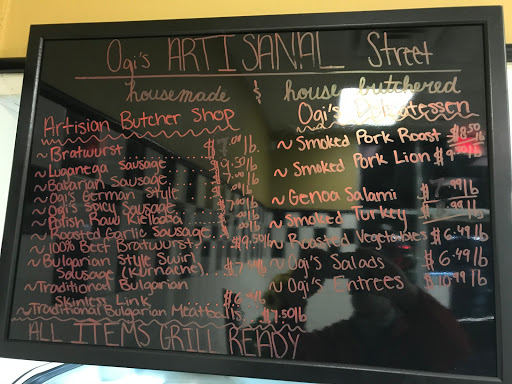 Ogi's ARTISANAL Street
housemade & house butchered
Artisian Butcher Shop
~ Bratwurst
~ Luganega Sausage
~ Batarian Sausage
~ Ogi's German Style
~ Ogi's Spicy Sausage
~ Polish Raw Kielbasa
~ Roasted Garlic Sausage
~ 100% Beef Bratwurst $9.50lb
~ Bulgarian Style Swirl
Sausage (Kurnache)
~ Traditional Bulgarian
Skinless Link
~ Traditional Bulgarian Meatballs $7.50lb
ALL ITEMS GRILL READY
Ogi's Delicatessen
~ Smoked Pork Roast $8.50 lb
~ Smoked Pork Lion
~ Genoa Salami
~ Smoked Turkey
~ Roasted Vegetables $6.49 lb
~ Ogi's Salads $6.49 lb
~ Ogi's Entrees $10.99 lb